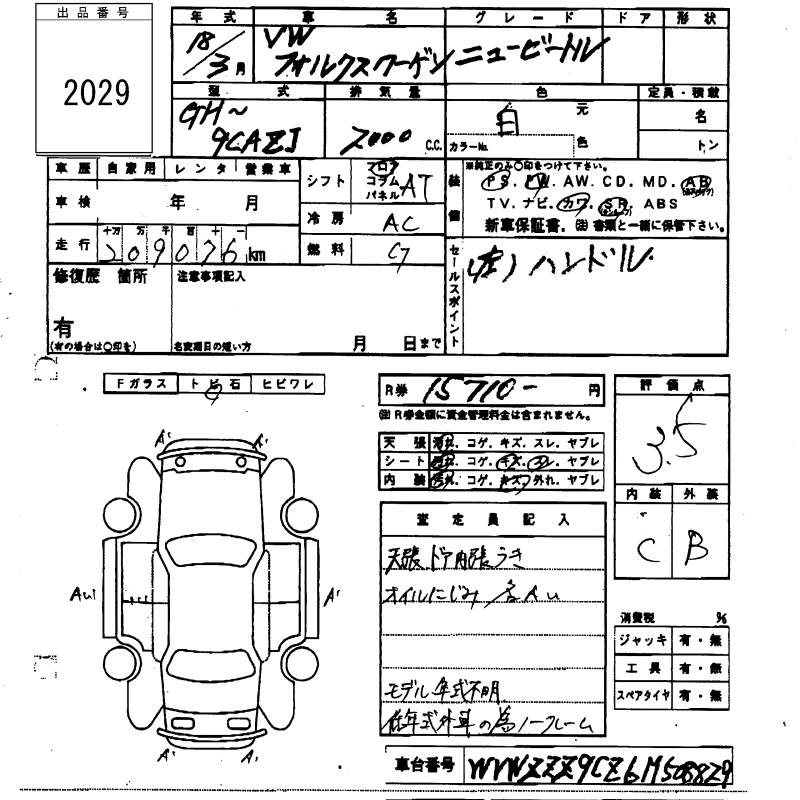 出品番号
2029
年式 車名 グレード ドア 形状
18/3月 VW フォルクスワーゲン ニュービートル
型式 排気量 色 定員・積載
GH~ 9CAZJ 2000 C.C. 白 元色 カラーNo. 名 トン
車歴 自家用 レンタ 営業車
車検 年 月
走行 十万 万 千 百 十 一
209076km
シフト フロア コラム パネル AT
冷房 AC
燃料 G
装備
※純正のみ○印をつけて下さい。
PS. PW. AW. CD. MD. AB
TV. ナビ. カワ. SR. ABS
新車保証書. 注 書類と一緒に保管下さい。
修復歴 箇所
有
(有の場合は○印を)
注意事項記入
名変期日の短い方 月 日まで
セールスポイント
(左)ハンドル
Fガラス トビ石 ヒビワレ
R券 15710- 円
注 R券金額に資金管理料金は含まれません。
天張 汚れ. コゲ. キズ. スレ. ヤブレ
シート 汚れ. コゲ. キズ. スレ. ヤブレ
内装 汚れ. コゲ. キズ. 外れ. ヤブレ
評価点
3.5
内装 外装
C B
査定員記入
天張ドア内張うき
オイルにじみ 各AU
モデル年式不明
低年式外車の為ノークレーム
A' A'
AU1 A'
A' A'
消費税 %
ジャッキ 有・無
工具 有・無
スペアタイヤ 有・無
車台番号 WVWZZZ9CZ6M508829